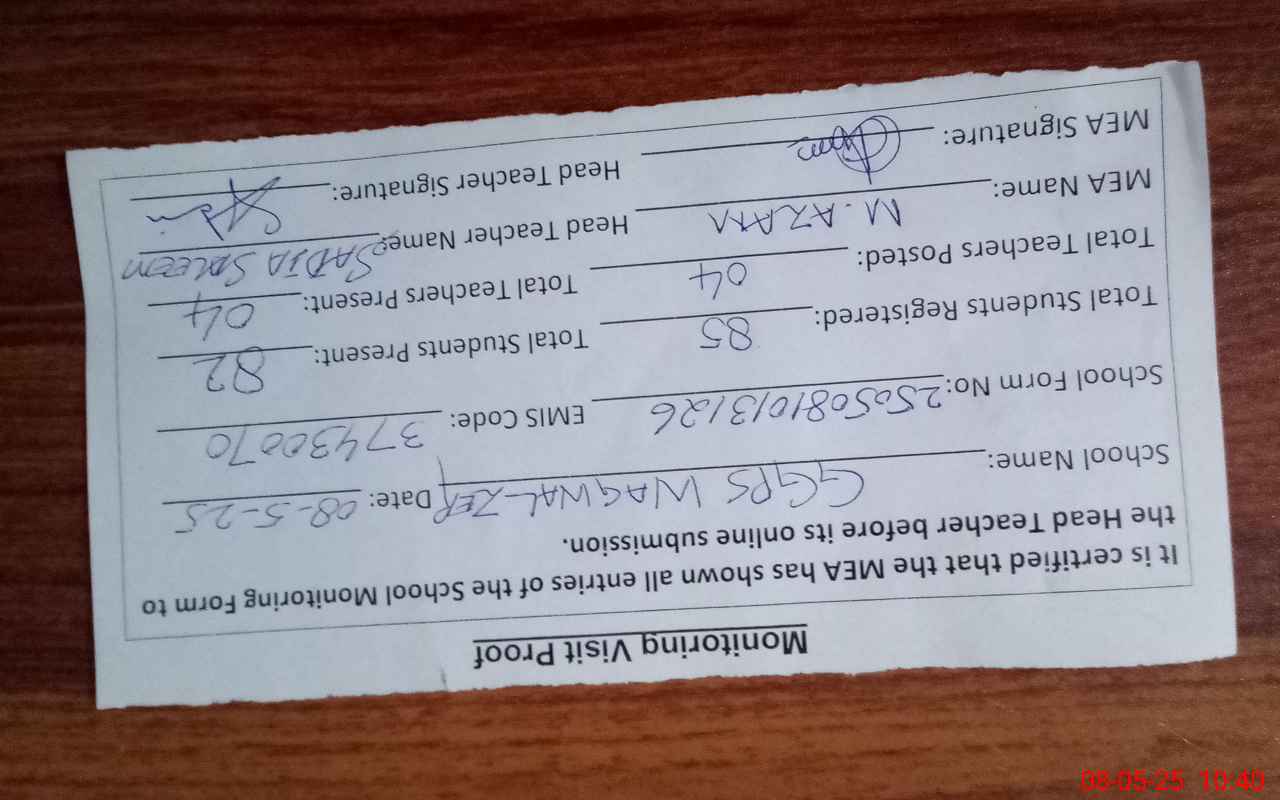 Monitoring Visit Proof
It is certified that the MEA has shown all entries of the School Monitoring Form to
the Head Teacher before its online submission.
School Name: GGPS WAGWAL-ZER Date: 08-5-25
School Form No: 2505081013126 EMIS Code: 37430070
Total Students Registered: 85 Total Students Present: 82
Total Teachers Posted: 04 Total Teachers Present: 04
MEA Name: M. AZAM Head Teacher Name: SADIA SALEEM
MEA Signature: Head Teacher Signature:
08-05-25 10:40